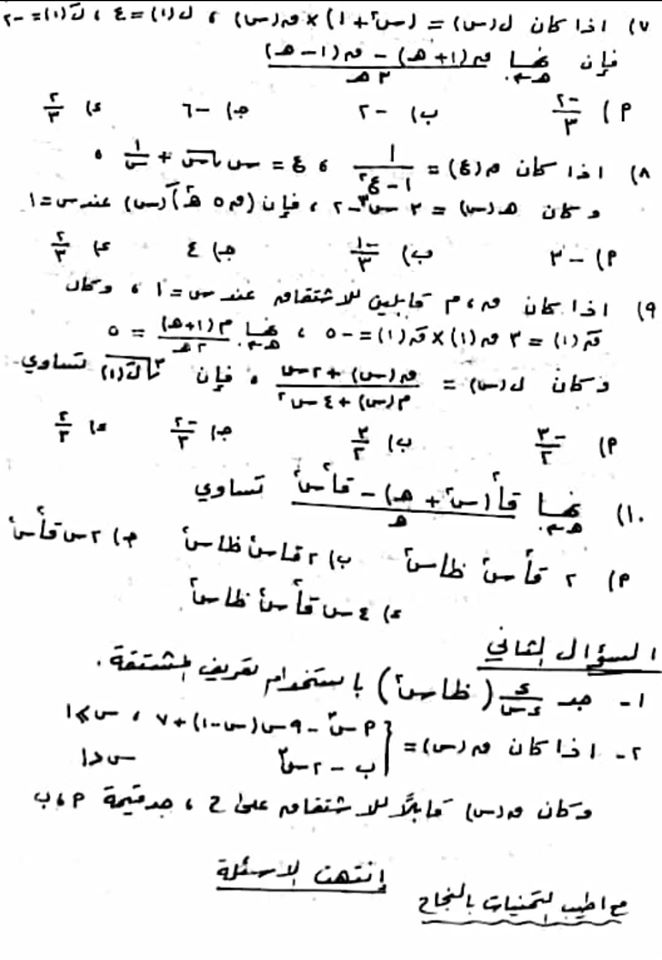 ٧) اذا كان ل(س) = (س٢ + ١) × ق(س) ، ل(١) = ٤ ، لَ(١) = -٢
فإن نهــا هـ←٠ (ق(١ + هـ) - ق(١ - هـ)) / ٣هـ
أ) -٢/٣   ب) -٢   جـ) -٦   د) ٢/٣
٨) اذا كان م(ع) = ١/(١ - ع٢) ، ع = س√س + ١/س ،
وكان هـ(س) = ٣س٢ - ٢ ، فإن (م ٥ هـَ)َ(س) عند س = ١
أ) -٣   ب) -١/٣   جـ) ٤   د) ٢/٣
٩) اذا كان ق ، م قابلين للاشتقاق عند س = ١ ، وكان
قَ(١) = ٣ ق(١) × قَ(١) = -٥ ، نهــا هـ←٠ م(١ + هـ)/٢هـ = ٥
وكان ل(س) = (ق(س) + ٢س)/(م(س) + ٤س٢) ، فإن ٣√لَ(١) تساوي
أ) -٣/٢   ب) ٣/٢   جـ) -٢/٣   د) ٢/٣
١٠) نهــا هـ←٠ (قا٢(س٢ + هـ) - قا٢س٢)/هـ تساوي
أ) ٢ قا٢س٢ ظاس٢   ب) ٢ قاس٢ ظاس٢   جـ) ٢س قا٢س٢
د) ٤س قا٢س٢ ظاس٢
السؤال الثاني
١- جد د/دس (ظاس٢) باستخدام تعريف المشتقة .
٢- اذا كان ق(س) = { أس٣ - ٩س(س - ١) + ٧ ، س ≥ ١
ب - ٢س٣   س < ١
وكان ق(س) قابلاً للاشتقاق على ح ، جد قيمة أ ، ب
إنتهت الاسئلة
مع اطيب التمنيات بالنجاح